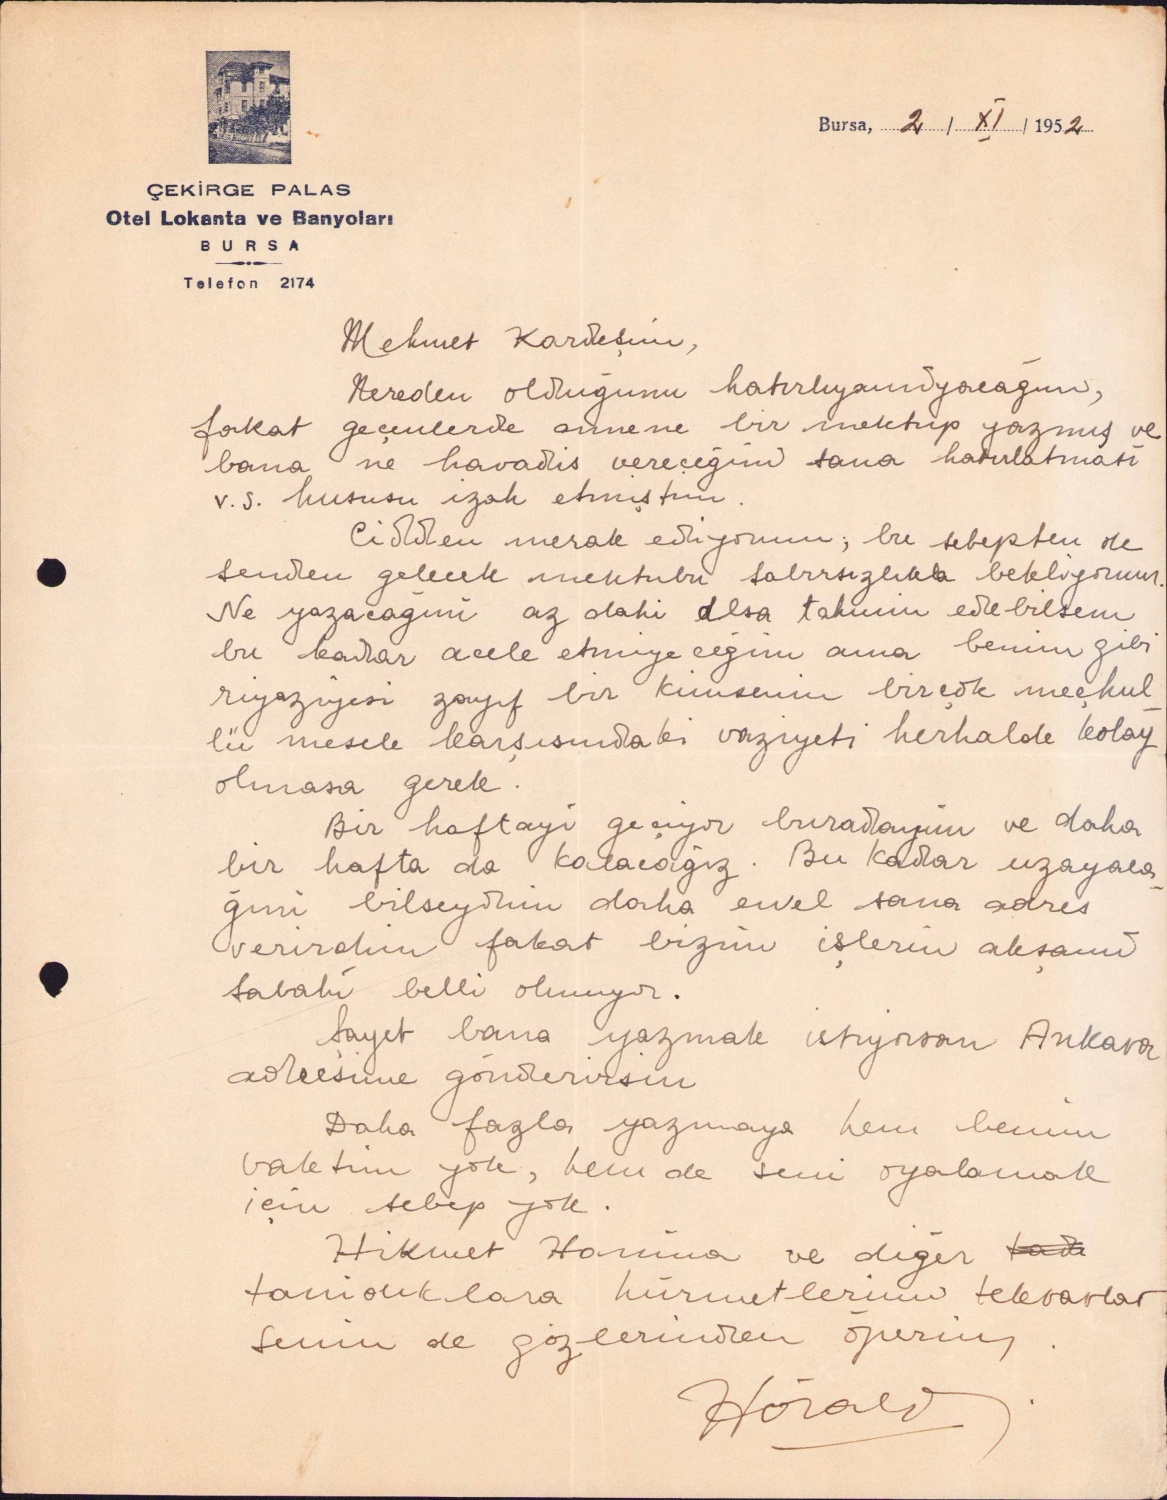 ÇEKİRGE PALAS
Otel Lokanta ve Banyoları
BURSA
Telefon 2174
Bursa, 2 / XI / 1952
Mehmet Kardeşim,
Nereden olduğunu
fakat geçenlerde annene bir mektup yazmış ve
bana ne havadis vereceğini sana hatırlatması
v.s. hususu izah etmiştim.
Cidden merak ediyorum; bu sebepten de
senden gelecek mektubu sabırsızlıkla bekliyorum.
Ne yazacağını az dahi olsa tahmin edebilsem
bu kadar acele etmiyeceğim ama benim gibi
riyaziyesi zayıf bir kimsenin birçok meçhul_
lü mesele karşısındaki vaziyeti herhalde kolay
olmasa gerek.
Bir haftayı geçiyor buradayım ve daha
bir hafta da kalacağız. Bu kadar uzayaca_
ğını bilseydim daha evvel sana adres
verirdim fakat bizim işlerin akşamı
sabahı belli olmuyor.
Şayet bana yazmak istiyorsan Ankara
adresime gönderirsin
Daha fazla yazmaya hem benim
vaktim yok, hem de seni oyalamak
için sebep yok.
Hikmet Hanıma ve diğer
tanıdıklara hürmetlerimi tekrarlar
senin de gözlerinden öperim,